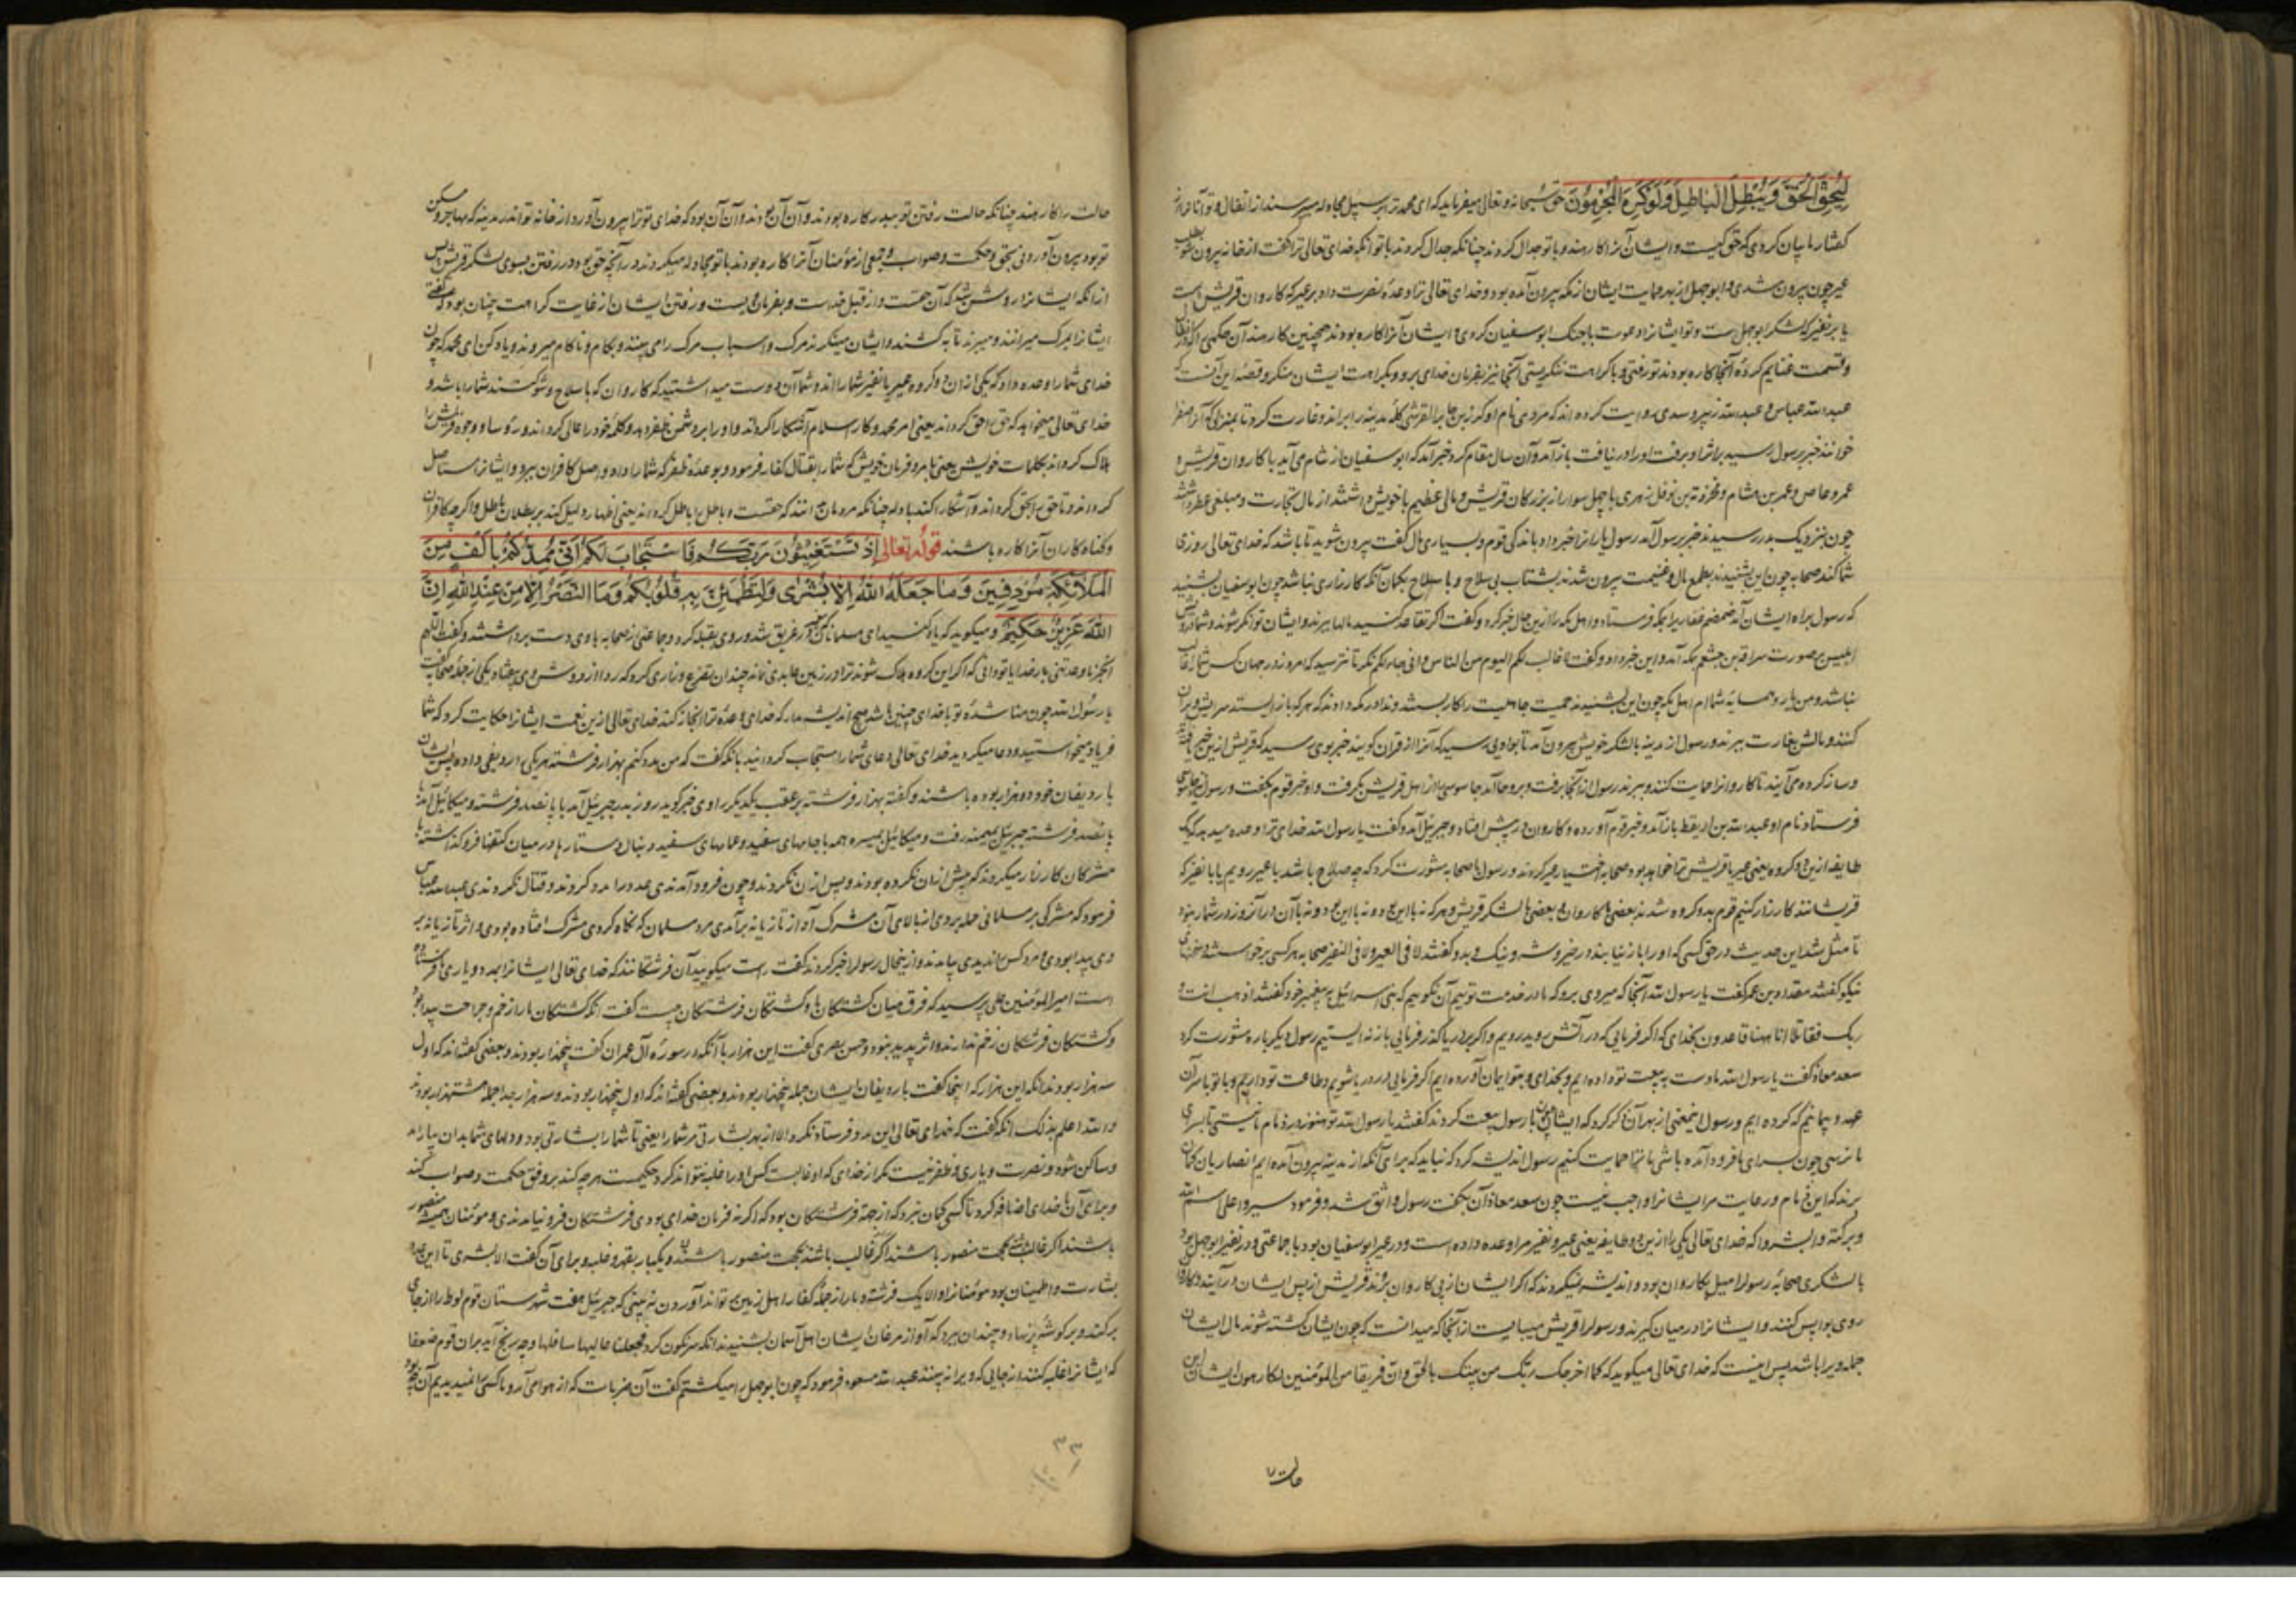 لِيُحِقَّ الْحَقَّ وَيُبْطِلَ الْبَاطِلَ وَلَوْ كَرِهَ الْمُجْرِمُونَ حق سبحانه و تعالی میفرماید که ای محمد ترا بر سبیل مجادله میپرسند از انفال و تو آنرا
کفتار با بیان کردی که حق کیست و ایشان آنرا کارهند و با تو جدال کردند چنانکه جدال کردند با تو آنکه خدای تعالی ترا کفت از خانه بیرون شو
عیر چون بیرون شدی و ابوجهل از بهر حمایت ایشان از مکه بیرون آمده بود و خدای تعالی ترا وعدهٔ نصرت داد بر عیر که کاروان قریش است
یا بر نفیر که لشکر ابوجهل است و تو ایشانرا دعوت با جنک ابوسفیان کردی و ایشان آنرا کاره بودند همچنین کارهند آن حکمی را که در انفال
و قسمت غنایم کردهٔ آنجا کاره بودند تو رفتی و با کراهت ننکریستی آنجا نیز بفرمان خدای برو و بکراهت ایشان منکر و قصهٔ این آنست که
عبدالله عباس و عبدالله زبیر و سدی روایت کرده اند که مردی نام او کرز بن جابر القرشی کلهٔ مدینه را براند و غارت کرد تا بمنزلی که آنرا صفرا
خوانند خبر برسول رسید بر اثر او برفت او را در نیافت باز آمد و آن سال مقام کرد خبر آمد که ابوسفیان از شام می آید با کاروان قریش و
عمرو عاص و عمر بن هشام و مخرمة بن نوفل زهری با چهل سوار از بزرکان قریش و مالی عظیم با خویش داشتند از مال تجارت و مبلغی عطر داشتند
چون بنزدیک بدر رسیدند خبر برسول آمد رسول یارانرا خبر داد باندکی قوم و بسیاری مال کفت بیرون شوید تا باشد که خدای تعالی روزی
شما کند صحابه چون این بشنیدند بطمع مال و غنیمت بیرون شدند بشتاب بی سلاح و با سلاح بکمان آنکه کارزاری نباشد چون ابوسفیان بشنید
که رسول براه ایشان آمد ضمضم غفاریرا بمکه فرستاد و اهل مکه را ازین حال خبر کرد و کفت اکر تقاعد کنید مالها ببرند و ایشان توانکر شوند و شما درویش
ابلیس بر صورت سراقة بن جعشم بمکه آمد و این خبر داد و کفت لا غالب لکم الیوم من الناس و انی جار لکم نکر تا نترسید که امروز در جهان کس شما را غالب
نباشد و من یار و همسایهٔ شماام اهل مکه چون این بشنیدند حمیت جاهلیت را کار بستند و ندا در مکه دادند که هر که باز ایستد سرایش ویران
کنند و مالش بغارت ببرند و رسول از مدینه با لشکر خویش بیرون آمد تا بوادیی رسید که آنرا قران کویند خبر بوی رسید که قریش ازین خبر یافتند
و ساز کرده می آیند تا کاروانرا حمایت کنند و ببرند رسول از آنجا برفت و بروحا آمد جاسوسی را از اهل قریش بکرفت و او خبر قوم بکفت و رسول نیز جاسوسی
فرستاد نام او عبدالله بن اریقط باز آمد و خبر قوم آورد و کاروان در پیش افتاد و جبریل آمد و کفت یا رسول الله خدای ترا وعده میدهد یکی
طایفه ازین دو کروه یعنی عیر یا قریش ترا خواهد بود صحابه اختیار عیر کردند و رسول با صحابه مشورت کرد که چه صلاح باشد با عیر رویم یا با نفیر که
قریشانند کارزار کنیم قوم بدو کروه شدند بعضی با کاروان و بعضی با لشکر قریش و هرکه نه با این دو نه با این دو نه با آن در آنروز در شمار نبود
تا مثل شد این حدیث در حق کسی که او را باز نیابند در خیر و شر و نیک و بد و کفتند لا فی العیر و لا فی النفیر صحابه هرکسی برخواستند و سخنهای
نیکو کفتند مقداد بن عمر کفت یا رسول الله آنجا که میروی برو که ما در خدمت توییم آن نکوییم که بنی اسرائیل پیغمبر خود کفتند اذهب انت و
ربک فقاتلا انا ههنا قاعدون بخدای که اکر فرمایی که در آتش رو بدر رویم و اکر بدریا کذر فرمایی باز نه ایستیم رسول دیکر باره مشورت کرد
سعد معاذ کفت یا رسول الله ما دست ببیعت تو داده ایم و بخدای و بتو ایمان آورده ایم اکر فرمایی در دریا شویم و طاعت تو داریم و با تو بر سر آن
عهد و پیمانیم که کرده ایم و رسول اینمعنی از بهر آن ذکر کرد که ایشان چون با رسول بیعت کردند کفتند یا رسول الله تو هنوز در زمام ما نیستی تا بسرای
ما نرسی چون بسرای ما فرود آمده باشی ما ترا حمایت کنیم رسول اندیشه کرد که نباید که برای آنکه از مدینه بیرون آمده ایم انصاریان کمان
برند که این ذمام و رعایت مر ایشانرا واجب نیست چون سعد معاذ آن بکفت رسول واثق شد و فرمود سیروا علی اسم الله
و برکته و ابشروا که خدای تعالی یکی را ازین دو طایفه یعنی عیر و نفیر مرا وعده داده است و در عیر ابوسفیان بود با جماعتی و در نفیر ابوجهل بود
با لشکری صحابهٔ رسول را میل بکاروان بود و اندیشه نمیکردند که اکر ایشان از پی کاروان بروند قریش از پس ایشان درآیند و کاروان
روی بواپس کنند و ایشانرا در میان کیرند و رسول را قریش میبایست از آنجا که میدانست که چون ایشان کشته شوند مال ایشان
جمله ویرا باشد پس اینست که خدای تعالی میکوید که کما اخرجک ربک من بیتک بالحق و ان فریقا من المؤمنین لکارهون ایشان این
حالت
حالت را کارهند چنانکه حالت رفتن تو ببدر کاره بودند و آن آن بود که خدای تو ترا بیرون آورد از خانه تو اندر مدینه که مهاجر و مسکن
تو بود بیرون آوردنی بحق و حکمت و صواب و جمعی از مؤمنان آنرا کاره بودند با تو مجادله میکردند در آنچه حق بود در رفتن بسوی لشکر قریش پس
از آنکه ایشانرا روشن شد که آن حقست و از قبل خداست و بفرمان ویست و رفتن ایشان از غایت کراهت چنان بود که کفتی
ایشانرا بمرک میرانند و میبرند تا بکشند و ایشان مینکرند مرک و اسباب مرک را می بینند و بکام و ناکام میروند و یاد کن ای محمد که چون
خدای شما را وعده داد که یکی از آن دو کروه عیر یا نفیر شما را اند و شما آن دوست میداشتید که کاروان که با سلاح و شوکت نیستند شما را باشد و
خدای تعالی میخواهد که حق را حق کرداند یعنی امر محمد و کار اسلام آشکارا کرداند و او را بر دشمن ظفر دهد و کلمهٔ خود را عالی کرداند و رؤسا و وجوه قریش را
هلاک کرداند بکلمات خویش یعنی بامر و فرمان خویش که شما را بقتال کفار فرمود و بوعدهٔ ظفر که شما را داد و اصل کافران ببرد و ایشانرا مستاصل
کرداند و تا حق را بحق کرداند و آشکارا کند بادله چنانکه مردمان دانند که حقست و باطل را باطل کرداند یعنی اظهار دلیل کند بر بطلان باطل و اکرچه کافران
و کناه کاران آنرا کاره باشند قوله تعالی إِذْ تَسْتَغِيثُونَ رَبَّكُمْ فَاسْتَجَابَ لَكُمْ أَنِّي مُمِدُّكُمْ بِأَلْفٍ مِنَ
الْمَلَائِكَةِ مُرْدِفِينَ وَمَا جَعَلَهُ اللَّهُ إِلَّا بُشْرَى وَلِتَطْمَئِنَّ بِهِ قُلُوبُكُمْ وَمَا النَّصْرُ إِلَّا مِنْ عِنْدِ اللَّهِ إِنَّ
اللَّهَ عَزِيزٌ حَكِيمٌ و میکوید که یاد کنید ای مسلمانان که در عریش شد و روی بقبله کرد و جماعتی از صحابه با وی دست برداشتند و کفت اللهم
انجز لنا وعدتنی بار خدایا تو دانی که اکر این کروه هلاک شوند ترا در زمین عابدی نماند چندان تضرع و زاری کرد که ردا از دوش وی بیفتاد یکی از جمله صحابه کفت
یا رسول الله چون مناشدهٔ تو با خدای چنین باشد هیچ اندیشه مدار که خدای وعدهٔ ترا انجاز کند خدای تعالی ازین نعمت ایشانرا حکایت کرد که شما
فریاد میخواستید و دعا میکردید خدای تعالی دعای شما را مستجاب کردانید بآنکه کفت که من مدد کنم بهزار فرشته هر یکی را ردیفی داده پس ایشان
با ردیفان خود دو هزار بوده باشند و کفته هزار فرشته بر عقب یکدیکر راوی خبر کوید روز بدر جبریل آمد با پانصد فرشته و میکائیل آمد با
پانصد فرشته جبریل بمیمنه رفت و میکائیل بمیسره همه با جامهای سفید و عمامهای سفید و دنبال دستارها در میان کتفها فرو کذاشته با
مشرکان کارزار میکردند که پیش از آن نکرده بودند و پس از آن نکردند و چون فرود آمدندی عدد را مدد کردند و قتال نکردندی عبدالله عباس
فرمود که مشرکی بر مسلمانی حمله بردی از بالای آن مشرک آواز تازیانه برآمدی مرد مسلمان که نکاه کردی مشرک افتاده بودی و اثر تازیانه بر
وی پیدا بودی و مرد کس را ندیدی بیامدند و ازینحال رسول را خبر کردند کفت راست میکویید آن فرشتکانند که خدای تعالی ایشانرا بمدد و یاری فرستاده
است امیرالمؤمنین علی پرسید که فرق میان کشتکان ما و کشتکان فرشتکان چیست کفت آنکه کشتکان ما را زخم و جراحت پیدا بود
و کشتکان فرشتکان زخم ندارند و اثر پدید نبود و حسن بصری کفت این هزار با آنکه در سورهٔ آل عمران کفت پنجهزار بودند و بعضی کفته اند که اول
سه هزار بودند آنکه این هزار که اینجا کفت با ردیفان ایشان جمله پنجهزار بودند و بعضی کفته اند که اول پنجهزار بودند و سه هزار بعد از جمله هشتهزار بودند
والله اعلم بذلک آنکه کفت که خدای تعالی این مدد فرستاد نکرد الا از بهر بشارتی مر شما را یعنی تا شما را بشارتی بود و دلهای شما بدان بیارامد
و ساکن شود و نصرت و یاری و ظفر نیست مکر از خدای که او غالبست کس او را غلبه نتواند کرد حکیمست هرچه کند بر وفق حکمت و صواب کند
و برای آن با خدای اضافه کرد تا کسی کمان نبرد که از جهة فرشتکان بود که اکر نه فرمان خدای بودی فرشتکان فرو نیامدندی و مؤمنان همیشه منصور
باشند اکر غالب باشند بحجت منصور باشند و یکبار بقهر و غلبه و برای آن کفت الا بشری تا این مدد
بشارت و اطمینان بود مؤمنانرا و الا یک فرشته دمار از جملهٔ کفار اهل زمین تواند آوردن نه بینی که جبریل هفت شهرستان قوم لوط را از جای
برکند و بر کوشهٔ پر نهاد و چندان ببرد که آواز مرغان ایشان اهل آسمان بشنیدند آنکه سرنکون کرد فجعلنا عالیها سافلها و چه رنج آید بر آن قوم ضعفا
که ایشانرا غلبه کنند از جایی که ویرا نه بینند عبدالله مسعود فرمود که چون ابوجهل را میکشتم کفت آن ضربات که از هوا می آمد و ما کسی را نمیدیدیم آن چه بود